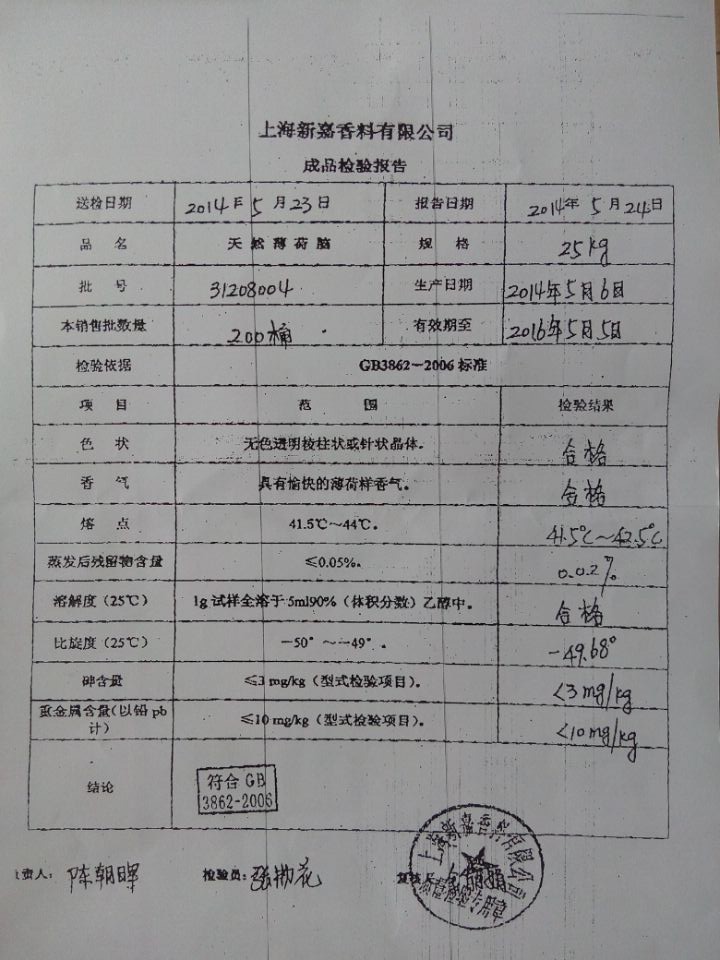 上海新嘉香料有限公司
成品检验报告
送检日期 2014年5月23日 报告日期 2014年5月24日
品 名 天然薄荷脑 规 格 25kg
批 号 31208004 生产日期 2014年5月6日
本销售批数量 200桶 有效期至 2016年5月5日
检验依据 GB3862-2006标准
项 目 范 围 检验结果
色 状 无色透明棱柱状或针状晶体。 合格
香 气 具有愉快的薄荷样香气。 合格
熔 点 41.5℃~44℃。 41.5℃~42.5℃
蒸发后残留物含量 ≤0.05%。 0.02%
溶解度(25℃) 1g试样全溶于5ml90%(体积分数)乙醇中。 合格
比旋度(25℃) -50°~-49°。 -49.68°
砷含量 ≤3 mg/kg(型式检验项目)。 <3mg/kg
重金属含量(以铅pb
计) ≤10 mg/kg(型式检验项目)。 <10mg/kg
结论 符合GB
3862-2006
责人: 陈朝晖 检验员: 张 花 复核
上海新嘉香料有限公司
质量检验专用章